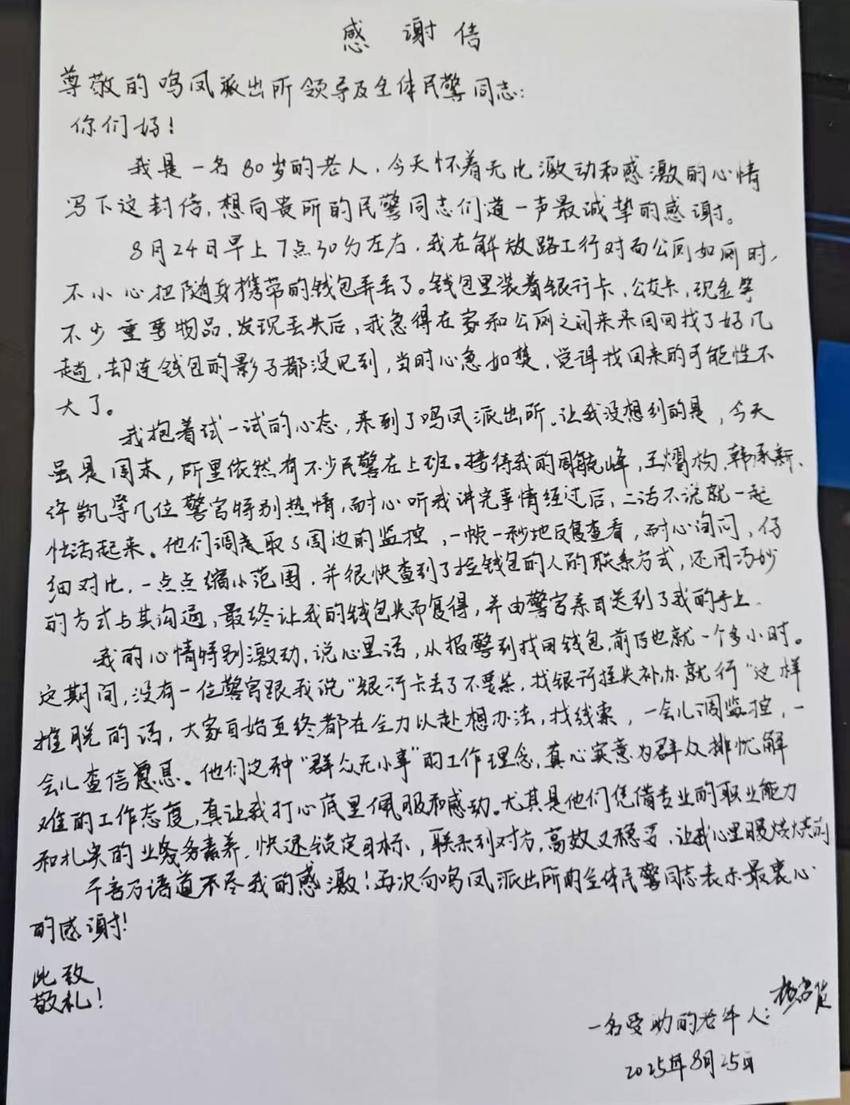 感谢信
尊敬的鸣凤派出所领导及全体民警同志:
你们好!
我是一名80岁的老人,今天怀着无比激动和感激的心情
写下这封信,想向贵所的民警同志们道一声最诚挚的感谢。
8月24日早上7点30分左右,我在解放路工行对面公厕如厕时,
不小心把随身携带的钱包弄丢了。钱包里装着银行卡,公交卡,现金等
不少重要物品,发现丢失后,我急得在家和公厕之间来来回回找了好几
趟,却连钱包的影子都没见到,当时心急如焚,觉得找回来的可能性不
大了。
我抱着试一试的心态,来到了鸣凤派出所。让我没想到的是,今天
虽是周末,所里依然有不少民警在上班。接待我的周毓峰,王熠杨,韩承新、
许凯等几位警官特别热情,耐心听我讲完事情经过后,二话不说就一起
忙活起来。他们调取了周边的监控,一帧一秒地反复查看,耐心询问,仔
细对比,一点点缩小范围,并很快查到了捡钱包的人的联系方式,还用巧妙
的方式与其沟通,最终让我的钱包失而复得,并由警官亲自送到了我的手上。
我的心情特别激动,说心里话,从报警到找回钱包,前后也就一个多小时。
这期间,没有一位警官跟我说"银行卡丢了不要紧,找银行挂失补办就行"这样
推脱的话,大家自始至终都在全力以赴想办法,找线索,一会儿调监控,一
会儿查信息。他们这种"群众无小事"的工作理念,真心实意为群众排忧解
难的工作态度,真让我打心底里佩服和感动。尤其是他们凭借专业的职业能力
和扎实的业务素养,快速锁定目标,联系到对方,高效又稳妥,让我心里暖烘烘的
千言万语道不尽我的感激!再次向鸣凤派出所的全体民警同志表示最衷心
的感谢!
此致
敬礼!
一名受助的老年人:
2025年8月25日